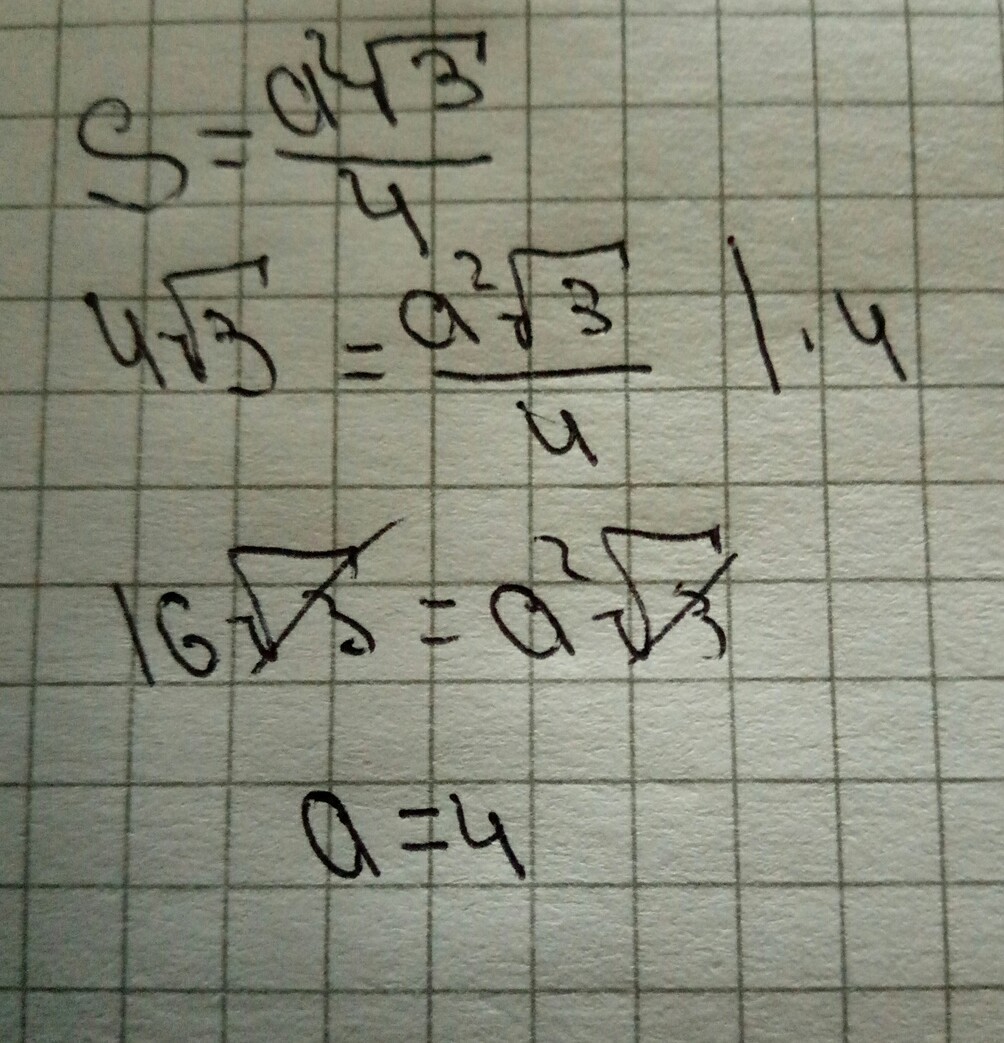 S = a²√3/4
4√3 = a²√3/4 | · 4
16√3 = a²√3
a = 4